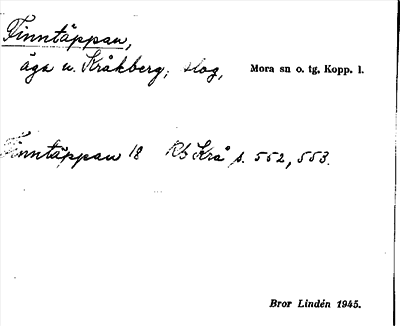 Finntäppan,
äga u. Kråkberg; skog, Mora sn o. tg, Kopp. l.
Finntäppan 18 Rb Krå s. 552, 553.
Bror Lindén 1945.